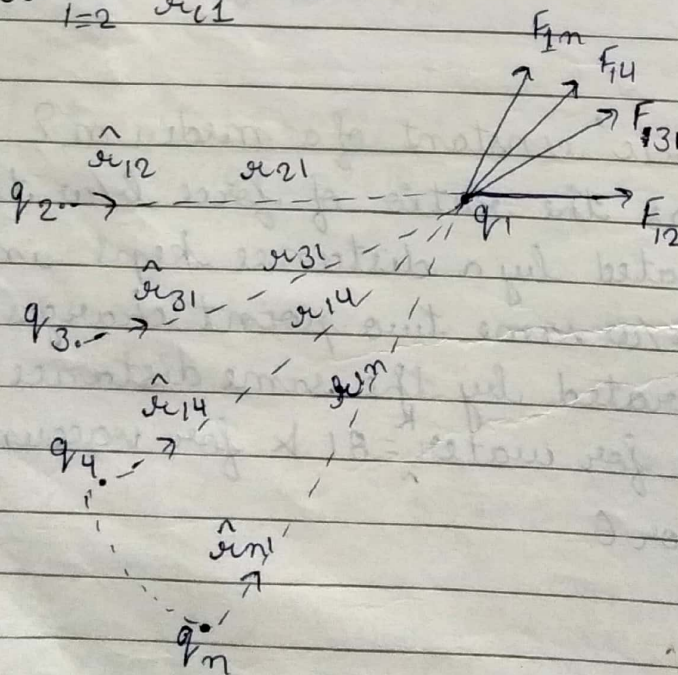 i=2 r_i1
F_1n
F_14
F_131
F_12
r̂_12 r_21
q_2 q_1
r̂_31 r_31
q_3 r_14
r̂_14
q_4
r̂_n1
q_n